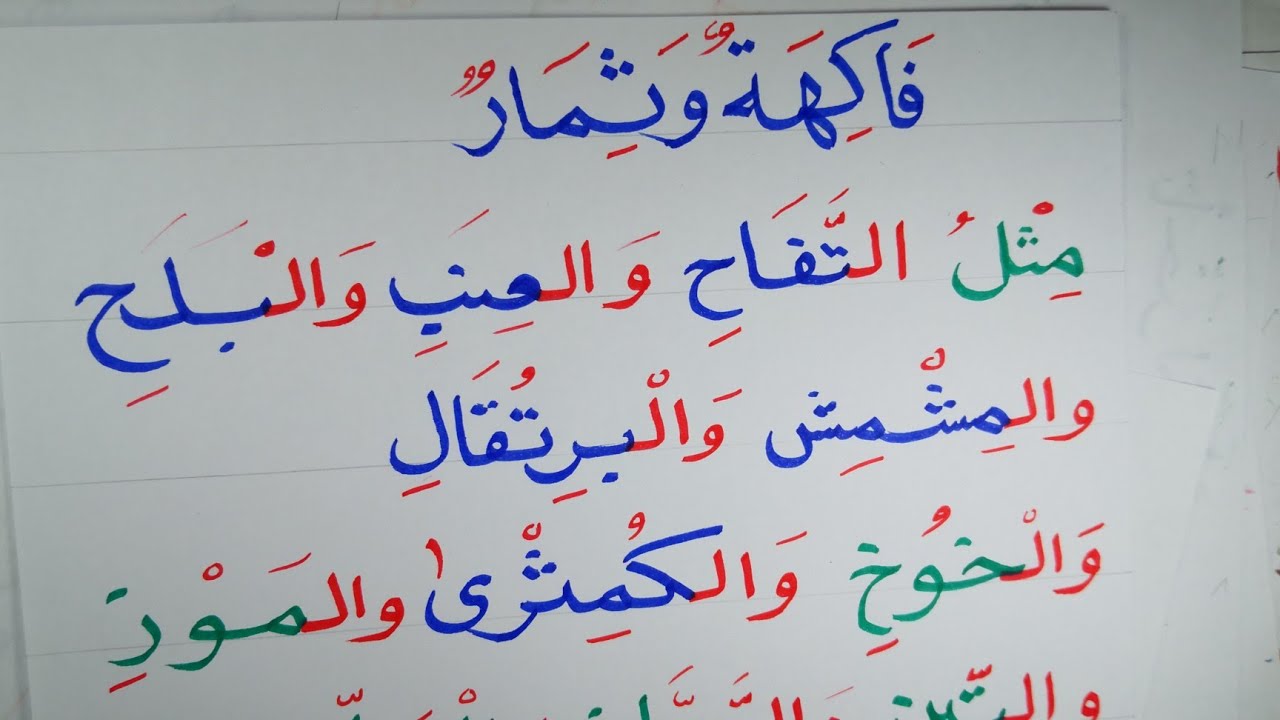 فَاكِهَةٌ وَثِمَارٌ
مِثْلُ التَّفَاحِ وَالعِنَبِ وَالْبَلَحِ
والمِشْمِشِ وَالْبرِتُقَالِ
وَالْخُوُخِ وَالكُمِثْرىٰ والمَوْزِ
والتّين